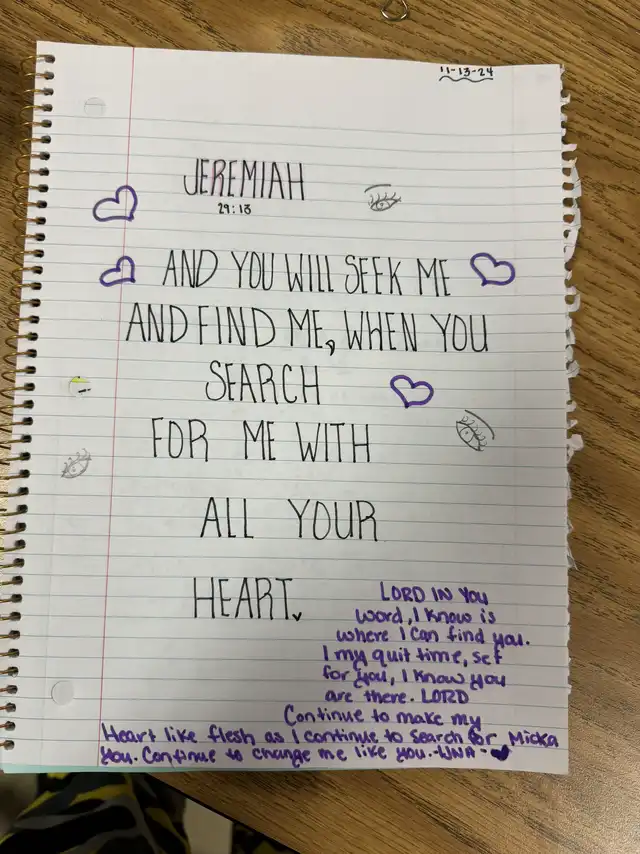 11-13-24
JEREMIAH
29:13
AND YOU WILL SEEK ME
AND FIND ME, WHEN YOU
SEARCH
FOR ME WITH
ALL YOUR
HEART.
LORD IN YOU
word, I know is
where I can find you.
I my quit time, set
for you, I know you
are there. LORD
Continue to make my
Heart like flesh as I continue to search for Micka
you. Continue to change me like you.